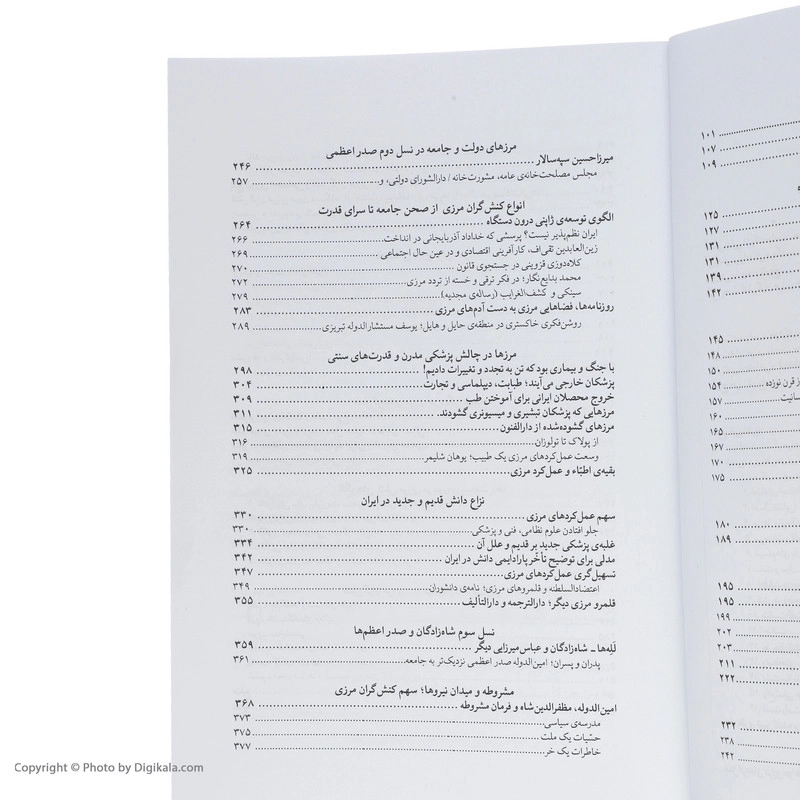 مرزهای دولت و جامعه در نسل دوم صدر اعظمی
میرزاحسین سپه‌سالار ۲۴۶
مجلس مصلحت‌خانه‌ی عامه، مشورت‌خانه / دارالشورای دولتی، و... ۲۵۷
انواع کنش‌گران مرزی از صحن جامعه تا سرای قدرت
الگوی توسعه‌ی ژاپنی درون دستگاه ۲۶۴
ایران نظم‌پذیر نیست؟ پرسشی که خداداد آذربایجانی در انداخت ۲۶۶
زین‌العابدین تقی‌اف، کارآفرینی اقتصادی و در عین حال اجتماعی ۲۶۹
کلاه‌دوزی قزوینی در جستجوی قانون ۲۷۰
محمد بدایع‌نگار؛ در فکر ترقی و خسته از تردد مرزی ۲۷۲
سینکی و کشف‌الغرایب (رساله‌ی مجدیه) ۲۷۹
روزنامه‌ها، فضاهایی مرزی به دست آدم‌های مرزی ۲۸۳
روشن‌فکری خاکستری در منطقه‌ی حایل و هایل؛ یوسف مستشارالدوله تبریزی ۲۸۹
مرزها در چالش پزشکی مدرن و قدرت‌های سنتی
با جنگ و بیماری بود که تن به تجدد و تغییرات دادیم! ۲۹۸
پزشکان خارجی می‌آیند؛ طبابت، دیپلماسی و تجارت ۳۰۴
خروج محصلان ایرانی برای آموختن طب ۳۰۹
مرزهایی که پزشکان تبشیری و میسیونری گشودند. ۳۱۱
مرزهای گشوده‌شده از دارالفنون ۳۱۵
از پولاک تا تولوزان ۳۱۶
وسعت عمل‌کردهای مرزی یک طبیب؛ یوهان شلیمر ۳۱۹
بقیه‌ی اطباء و عمل‌کرد مرزی ۳۲۵
نزاع دانش قدیم و جدید در ایران
سهم عمل‌کردهای مرزی ۳۳۰
جلو افتادن علوم نظامی، فنی و پزشکی ۳۳۰
غلبه‌ی پزشکی جدید بر قدیم و علل آن ۳۳۴
مدلی برای توضیح تأخر پارادایمی دانش در ایران ۳۴۲
تسهیل‌گری عمل‌کردهای مرزی ۳۴۷
اعتضادالسلطنه و قلمروهای مرزی؛ نامه‌ی دانشوران ۳۴۹
قلمرو مرزی دیگر؛ دارالترجمه و دارالتألیف ۳۵۵
نسل سوم شاه‌زادگان و صدر اعظم‌ها
لَلِه‌ها – شاه‌زادگان و عباس‌میرزایی دیگر ۳۵۹
پدران و پسران؛ امین‌الدوله صدر اعظمی نزدیک‌تر به جامعه ۳۶۱
مشروطه و میدان نیروها؛ سهم کنش‌گران مرزی
امین‌الدوله، مظفرالدین‌شاه و فرمان مشروطه ۳۶۸
مدرسه‌ی سیاسی ۳۷۳
حسّیات یک ملت ۳۷۵
خاطرات یک خر ۳۷۷
۱۰۱
۱۰۷
۱۰۹
۱۲۵
۱۲۷
۱۳۱
۱۳۱
۱۳۹
۱۴۲
۱۴۵
۱۴۸
۱۵۰
ز قرن نوزده ۱۵۴
سانیت ۱۵۷
۱۶۰
۱۶۵
۱۶۷
۱۷۰
۱۷۵
۱۸۰
۱۸۹
۱۹۵
۱۹۵
۱۹۹
۲۰۲
۲۰۳
۲۱۱
۲۲۲
۲۳۲
۲۳۸
۲۴۲
Copyright © Photo by Digikala.com